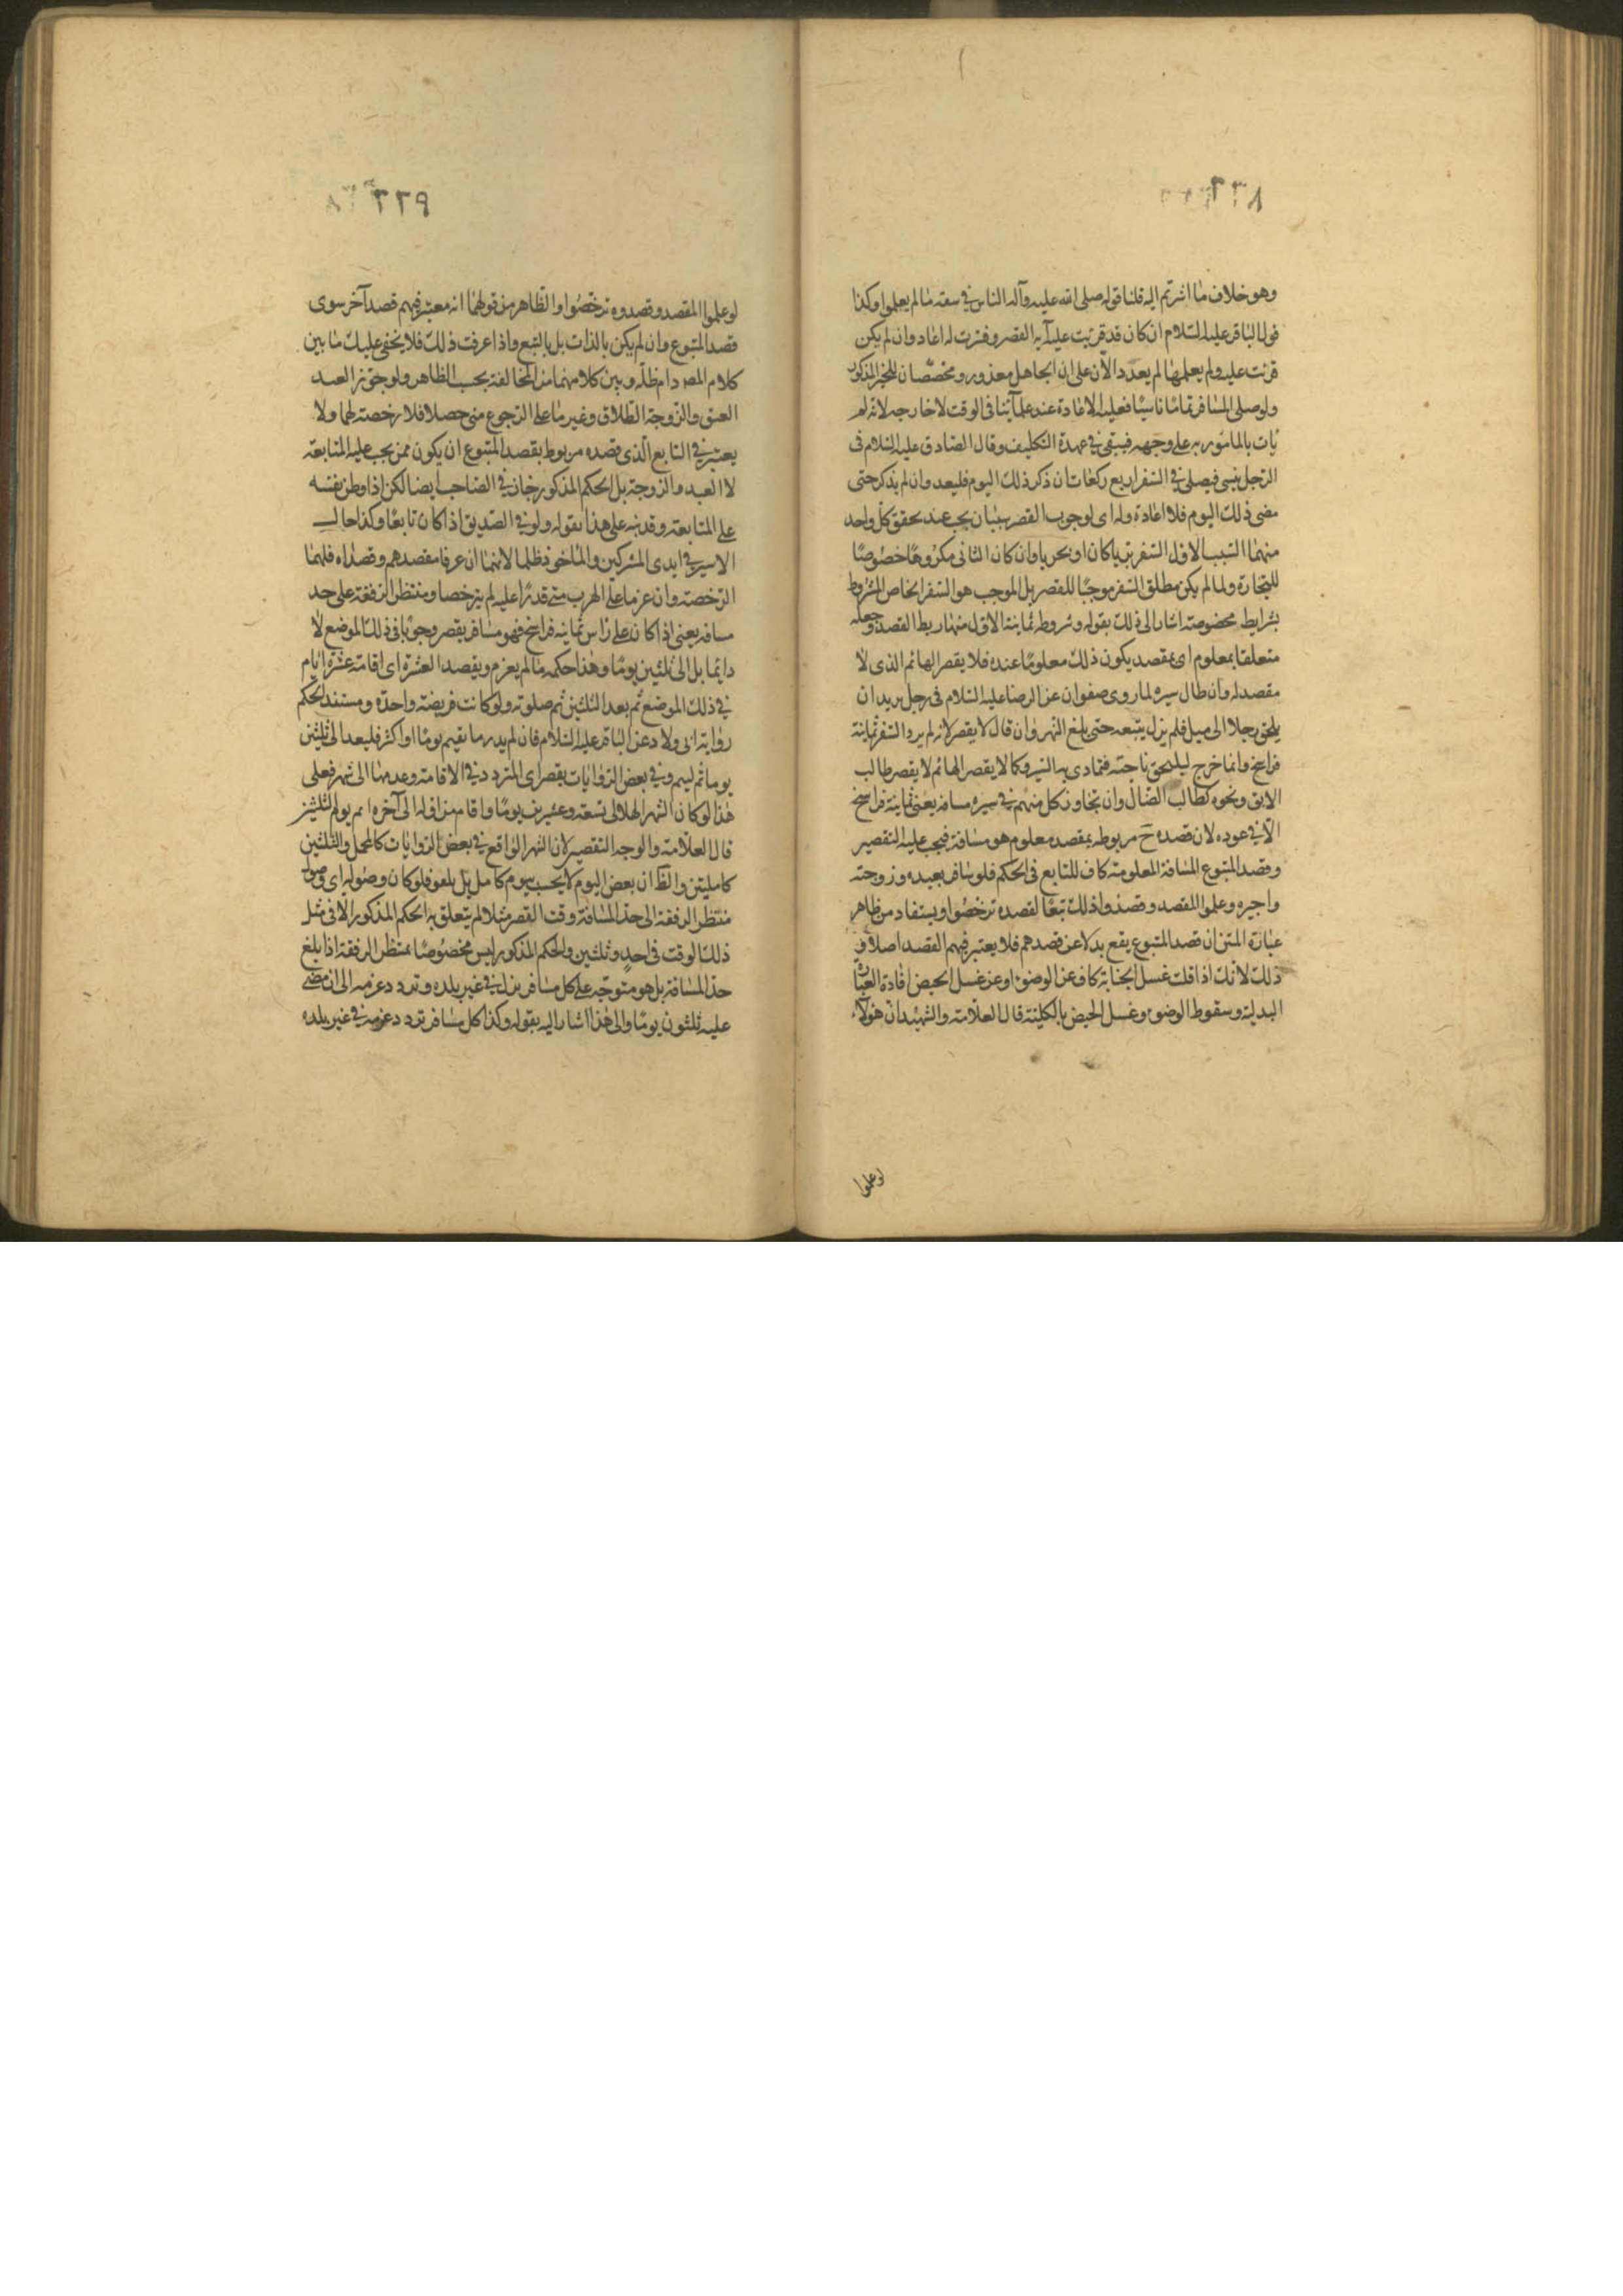 وهو خلاف ما اشرتم اليه قلنا قوله صلى الله عليه وآله الناس في سعة ما لم يعلموا وكذا
قول الباقر عليه السلام ان كان قد قرئت عليه آية القصر وفسرت له اعاد وان لم يكن
قرئت عليه ولم يعلمها لم يعد دالان على ان الجاهل معذور ومخصصان للخبر المذكور
ولو صلى المسافر تماما ناسيا فعليه الاعادة عند علمائنا في الوقت لا خارجه لانه لم
يات بالمامور به على وجهه فيبقى في عهدة التكليف وقال الصادق عليه السلام في
الرجل ينسى فيصلي في السفر اربع ركعات ان ذكر ذلك اليوم فليعد وان لم يذكر حتى
مضى ذلك اليوم فلا اعادة وله اى لوجوب القصر سببان يجب عند تحقق كل واحد
منهما السبب الاول السفر بريا كان او بحريا وان كان الثانى مكروها خصوصا
للتجارة ولما لم يكن مطلق السفر موجبا للقصر بل الموجب هو السفر الخاص المشروط
بشرايط مخصوصة اشار الى ذلك بقوله وشروطه ثمانية الاول منها ربط القصد وجعله
متعلقا بمعلوم اى بمقصد يكون ذلك معلوما عنده فلا يقصر الهائم الذى لا
مقصد له وان طال سيره لما روى صفوان عن الرضا عليه السلام فى رجل يريد ان
يلحق رجلا الى ميل فلم يزل يتبعه حتى بلغ النهروان قال لا يقصر لانه لم يرد السفر ثمانية
فراسخ وانما خرج ليلحق صاحبه فتمادى به السير وكما لا يقصر الهائم لا يقصر طالب
الآبق ونحوه كطالب الضال وان تجاوز كل منهم في سيره مسافة يعنى ثمانية فراسخ
الا في عوده لان قصده ح مربوط بمقصد معلوم هو مسافة فيجب عليه التقصير
وقصد المتبوع المسافة المعلومة كاف للتابع فى الحكم فلو سافر بعبده وزوجته
واجيره وعلموا المقصد وقصدوا ذلك تبعا لقصده ترخصوا ويستفاد من ظاهر
عبارة المتن ان قصد المتبوع يقع بدلا عن قصدهم فلا يعتبر فيهم القصد اصلا و
ذلك لانك اذا قلت غسل الجنابة كاف عن الوضوء او عن غسل الحيض افادة العبارة
البدلية وسقوط الوضوء وغسل الحيض بالكلية قال العلامة والشهيدان هؤلاء
لو علموا
لو علموا المقصد وقصدوه ترخصوا والظاهر من قولهما انه معتبر فيهم قصد آخر سوى
قصد المتبوع وان لم يكن بالذات بل بالتبع واذا عرفت ذلك فلا يخفى عليك ما بين
كلام المص دام ظله وبين كلامهما من المخالفة بحسب الظاهر ولو جوز العبد
العتق والزوجة الطلاق وغيرما على الرجوع متى حصلا فلا رخصة لهما ولا
يعتبر في التابع الذى قصده مربوط بقصد المتبوع ان يكون ممن يجب عليه المتابعة
لا العبد والزوجة بل الحكم المذكور جار في الصاحب ايضا لكن اذا وطن نفسه
على المتابعة وقد نبه على هذا بقوله ولو في الصديق اذا كان تابعا وكذا حال
الاسير في ايدى المشركين والماخوذ ظلما لانهما ان عرفا مقصدهم وقصداه فلهما
الرخصة وان عزما على الهرب متى قدرا عليه لم يترخصا ومنتظر الرفقة على حد
مسافة يعنى اذا كان على راس ثمانية فراسخ فهو مسافر يقصر وجوبا في ذلك الموضع لا
دائما بل الى ثلثين يوما وهذا حكمه ما لم يعزم ويقصد العشرة اى اقامة عشرة ايام
في ذلك الموضع ثم بعد الثلثين تم صلوته ولو كانت فريضة واحدة ومستند الحكم
رواية ابى ولاد عن الباقر عليه السلام فان لم يدر ما يقيم يوما او اكثر فليعد الى ثلثين
يوما ثم ليتم وفي بعض الروايات يقصر اى المتردد في الاقامة وعدمها الى شهر فعلى
هذا لو كان الشهر الهلالى تسعة وعشرين يوما واقام من اوله الى آخره اتم يوم الثلثين
قال العلامة والوجه التقصير لان الشهر الواقع في بعض الروايات كالمجمل والثلثين
كالمبين والظ ان بعض اليوم لا يحسب بيوم كامل بل يلغو فلو كان وصوله اى وصول
منتظر الرفقة الى حد المسافة وقت القصر مثلا لم يتعلق به الحكم المذكور الا فى مثل
ذلك الوقت فى احد وثلثين والحكم المذكور ليس مخصوصا بمنتظر الرفقة اذا بلغ
حد المسافة بل هو متوجه على كل مسافر نزل في غير بلده وتردد عزمه الى ان مضى
عليه ثلثون يوما والى هذا اشار اليه بقوله وكذا كل مسافر تردد عزمه في غير بلده